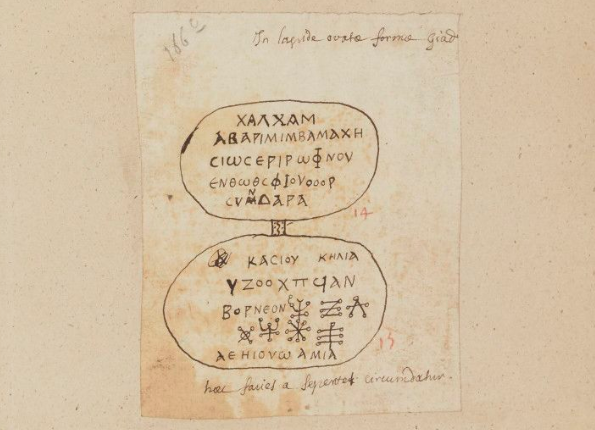 1860
In lapide ovatæ formæ Giad
ΧΑΛΧΑΜ
ΑΒΑΡΙΜΙΜΒΑΜΑΧΗ
CΙΩCΕΡΙΡΩΦΝΟΥ
ΕΝΘΩΘCΦΙΟΥΟΟΟΡ
CΥΜΝΔΑΡΑ
14
ΚΑCΙΟΥ ΚΗΛΙΑ
ΥΖΟΟΧΠϤΑΝ
ΒΟΡΝΕΟΝ
ΑΕΗΙΟΥΩ ΑΜΙΑ
15
hæc facies a serpente circumdatur.